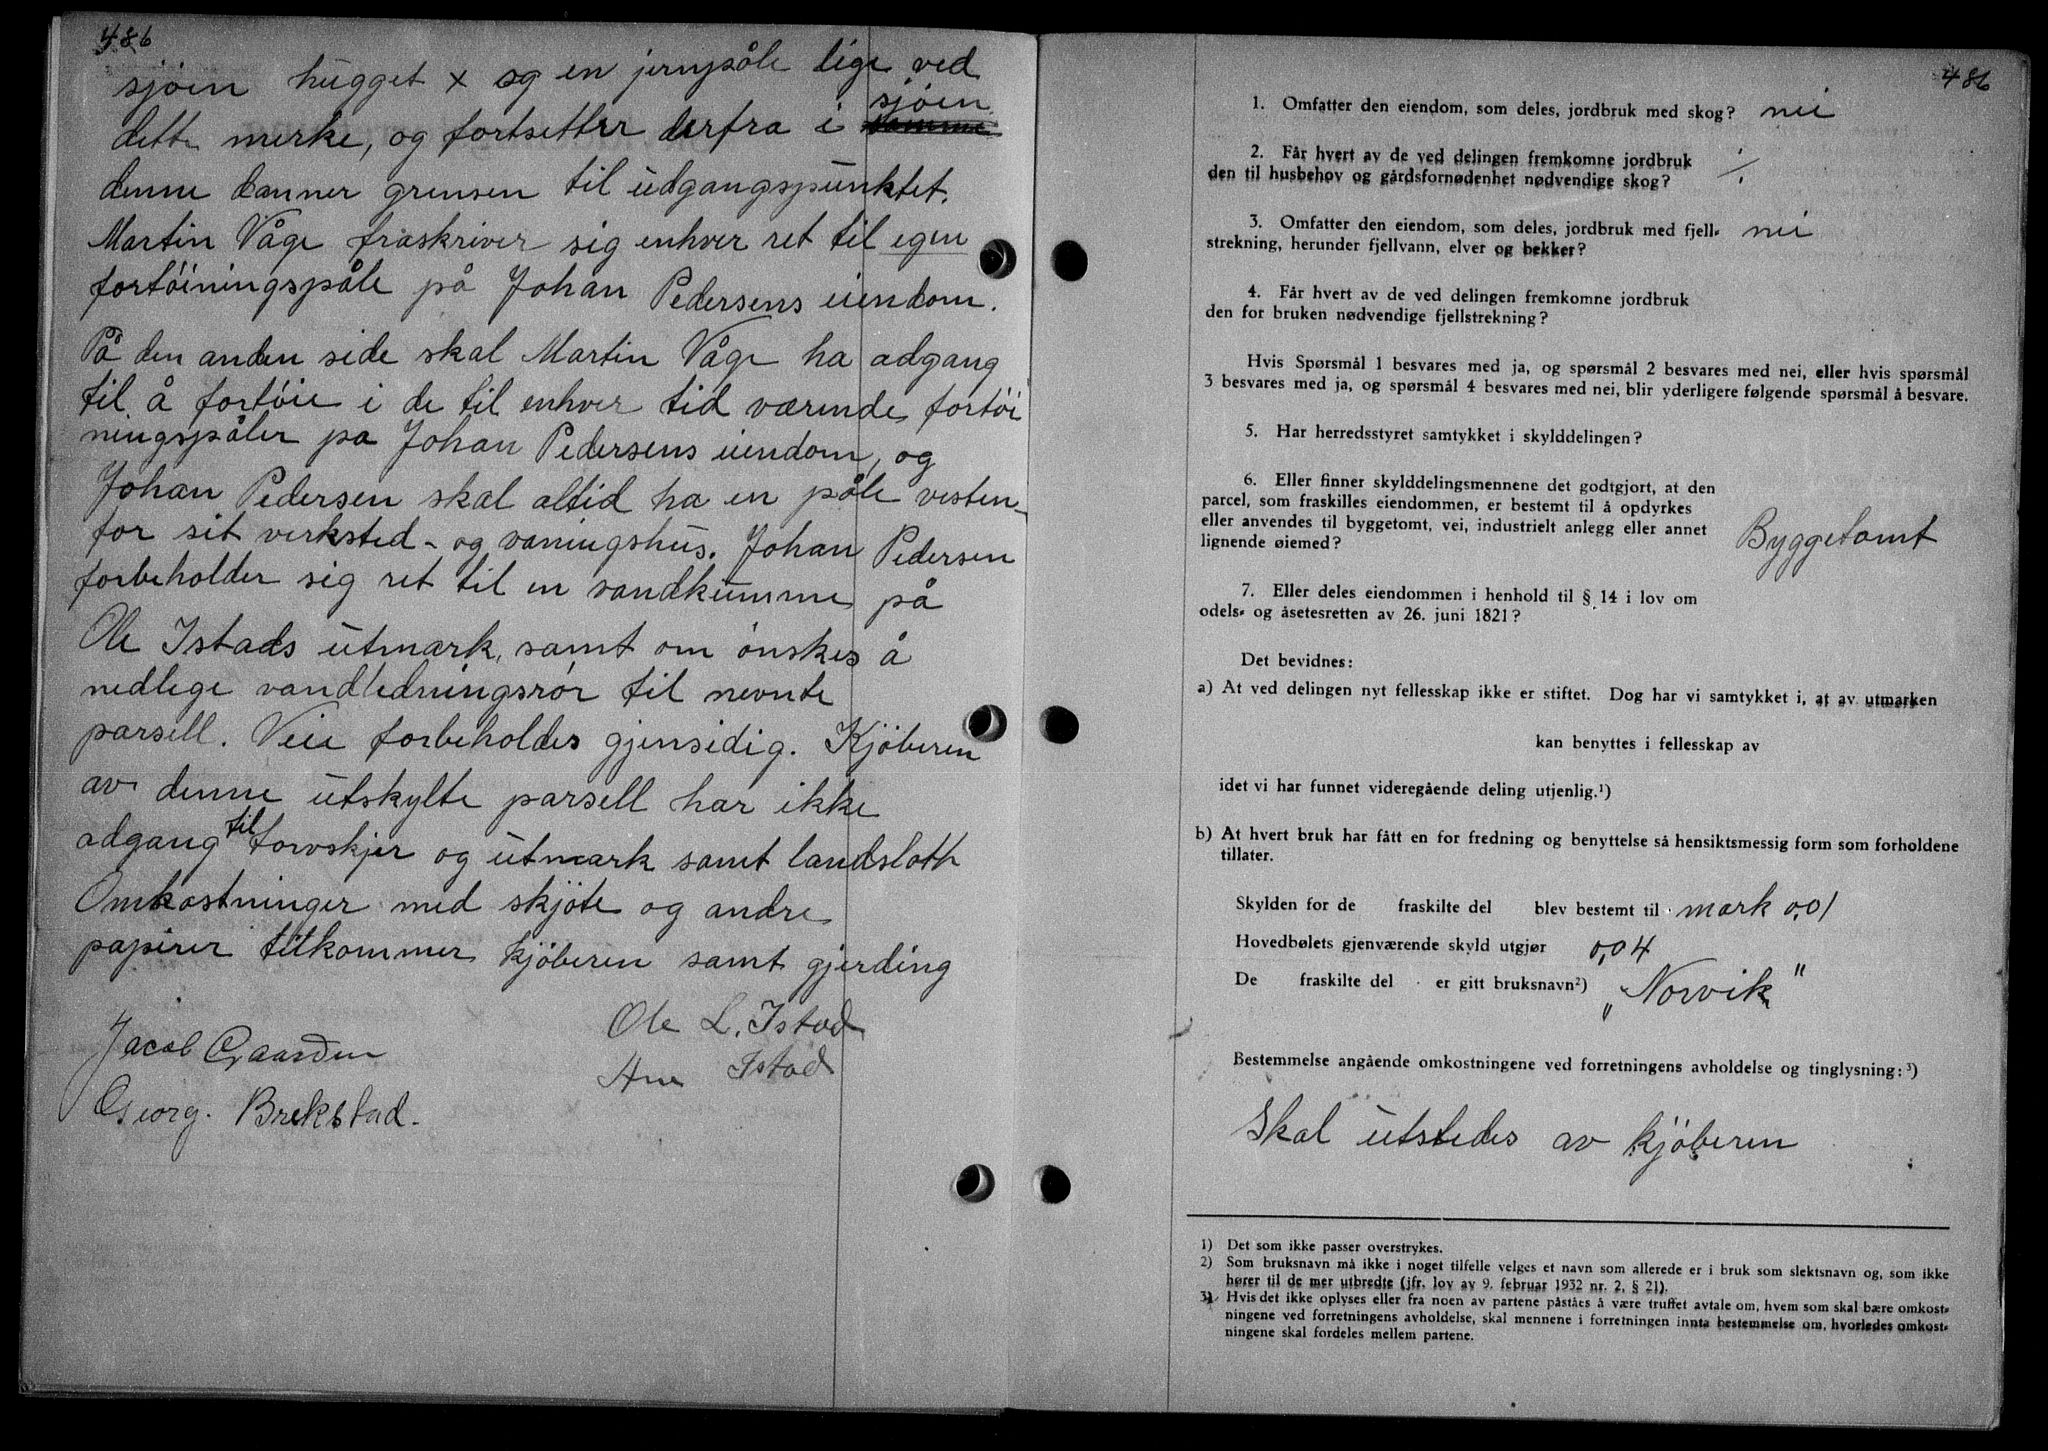 486
sjöen hugget x og en jernpåle lige ved
sjöen
dette merke, og fortsetter derfra i samme
denne danner grensen til udgangspunktet.
Martin Våge fraskriver sig enhver ret til egen
fortöiningspåle på Johan Pedersens eiendom.
På den anden side skal Martin Våge ha adgang
til å fortöie i de til enhver tid værende fortöi
ningspåler pa Johan Pedersens eiendom, og
Johan Pedersen skal altid ha en påle vesten-
for sit verksted- og vaningshus. Johan Pedersen
forbeholder sig ret til en sandkumme på
Ole Istads utmark, samt om önskes å
nedlege vandledningsrör til nevnte
parsell. Veie forbeholdes gjensidig. Kjöberen
av denne utskylte parsell har ikke
adgang til torvskjer og utmark samt landsloth
Omkostninger med skjöte og andre
papirer tilkommer kjöberen samt gjerding
Ole L. Istad
Jacob Gaarden
Ane Istad
Georg. Brekstad.
486
1. Omfatter den eiendom, som deles, jordbruk med skog? nei
2. Får hvert av de ved delingen fremkomne jordbruk
den til husbehov og gårdsfornødenhet nødvendige skog?
3. Omfatter den eiendom, som deles, jordbruk med fjell- nei
strekning, herunder fjellvann, elver og bekker?
4. Får hvert av de ved delingen fremkomne jordbruk
den for bruken nødvendige fjellstrekning?
Hvis Spørsmål 1 besvares med ja, og spørsmål 2 besvares med nei, eller hvis spørsmål
3 besvares med ja, og spørsmål 4 besvares med nei, blir yderligere følgende spørsmål å besvare.
5. Har herredsstyret samtykket i skylddelingen?
6. Eller finner skylddelingsmennene det godtgjort, at den
parcel, som fraskilles eiendommen, er bestemt til å opdyrkes
eller anvendes til byggetomt, vei, industrielt anlegg eller annet
lignende øiemed? Byggetomt
7. Eller deles eiendommen i henhold til § 14 i lov om
odels- og åsetesretten av 26. juni 1821?
Det bevidnes:
a) At ved delingen nyt fellesskap ikke er stiftet. Dog har vi samtykket i, at av utmarken
kan benyttes i fellesskap av
idet vi har funnet videregående deling utjenlig.¹)
b) At hvert bruk har fått en for fredning og benyttelse så hensiktsmessig form som forholdene
tillater.
Skylden for de fraskilte del blev bestemt til mark 0,01
Hovedbølets gjenværende skyld utgjør 0,04
De fraskilte del er gitt bruksnavn²) „Norvik"
Bestemmelse angående omkostningene ved forretningens avholdelse og tinglysning:³)
Skal utstedes av kjöberen
1) Det som ikke passer overstrykes.
2) Som bruksnavn må ikke i noget tilfelle velges et navn som allerede er i bruk som slektsnavn og, som ikke
hører til de mer utbredte (jfr. lov av 9. februar 1932 nr. 2, § 21).
3) Hvis det ikke oplyses eller fra noen av partene påståes å være truffet avtale om, hvem som skal bære omkost-
ningene ved forretningens avholdelse, skal mennene i forretningen innta bestemmelse om, hvorledes omkost-
ningene skal fordeles mellem partene.